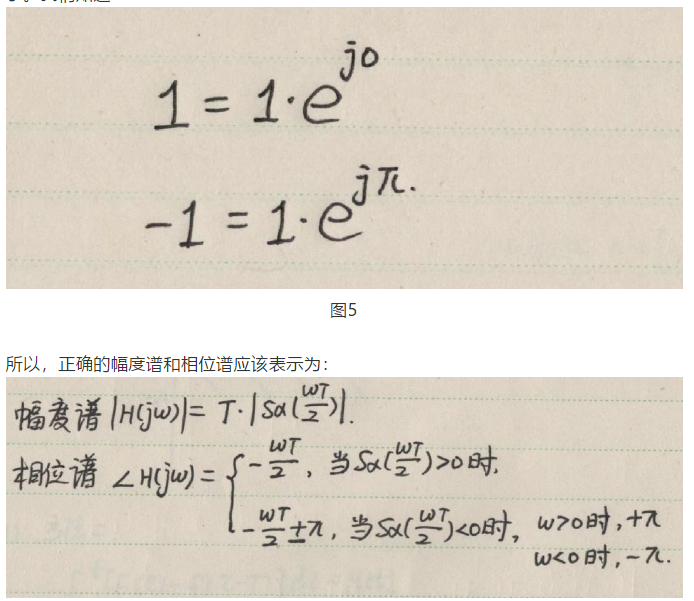 1 = 1·e^{j0}
-1 = 1·e^{jπ}.
图5
所以，正确的幅度谱和相位谱应该表示为：
幅度谱 |H(jω)| = T·|Sa(ωT/2)|.
相位谱 ∠H(jω) = { -ωT/2, 当Sa(ωT/2)>0时,
-ωT/2 ± π, 当Sa(ωT/2)<0时, ω>0时, +π
ω<0时, -π.